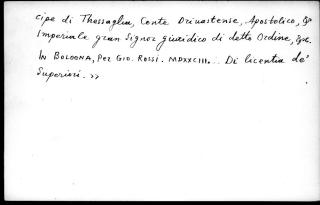 cipe di Thessaglia, Conte Drivastense, Apostolico, &
Imperiale gran Signor giuridico di detto Ordine, &c.
IN BOLOGNA, PER GIO. ROSSI. MDXXCIII... Di licentia de'
Superiori. >>